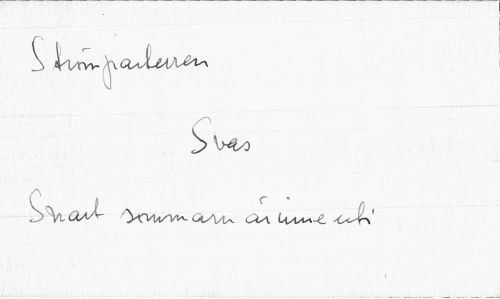 Strömparterren
Svas
Snart sommarn är inne uti